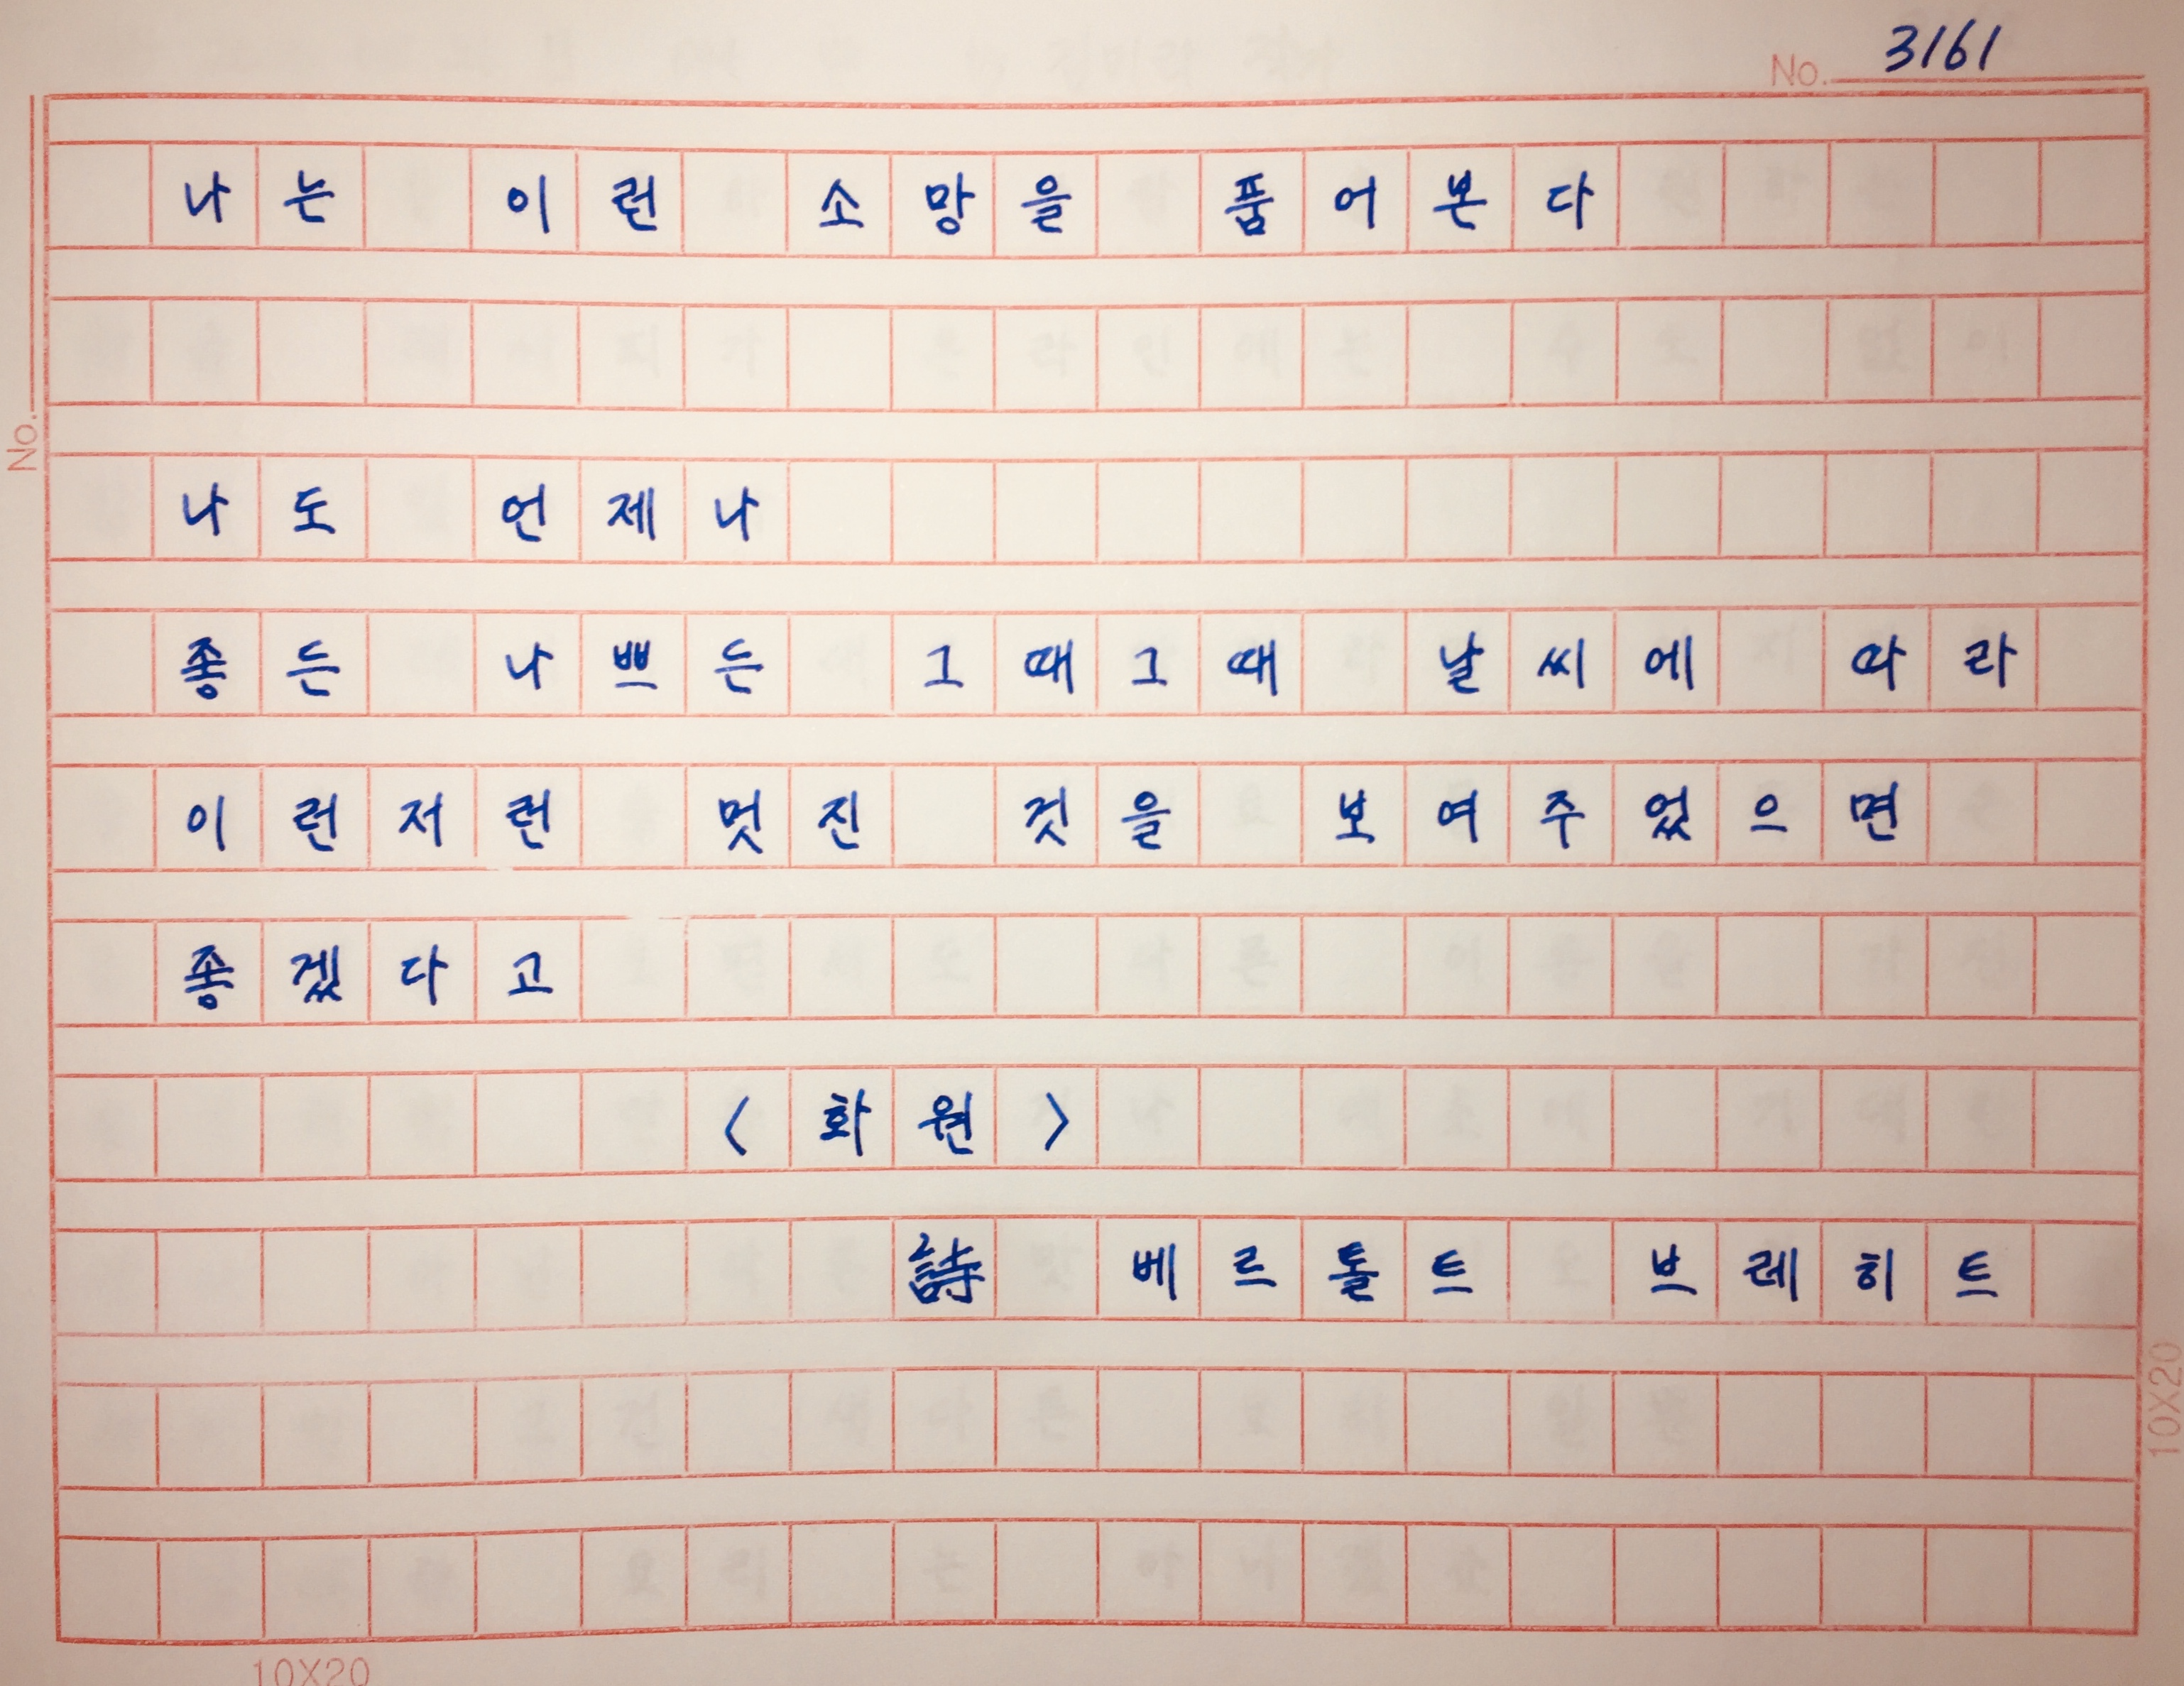 No. 3161
나는 이런 소망을 품어본다
No.
나도 언제나
좋든 나쁘든 그때그때 날씨에 따라
이런저런 멋진 것을 보여주었으면
좋겠다고
〈화원〉
詩 베르톨트 브레히트
10X20
10X20